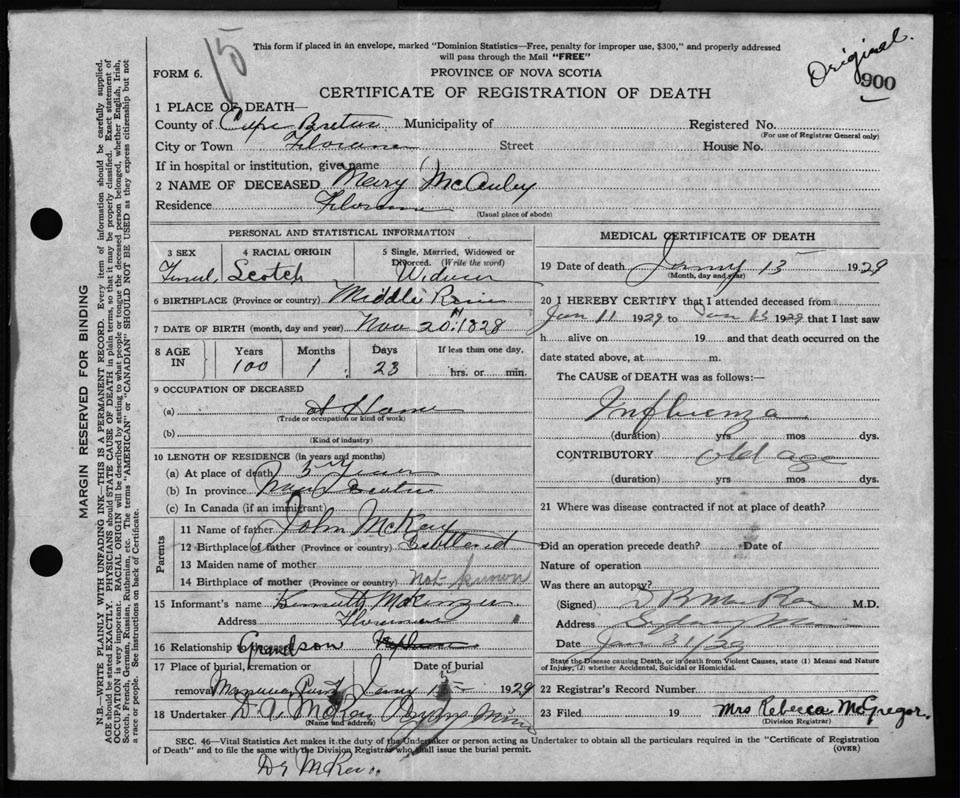 15
This form if placed in an envelope, marked "Dominion Statistics—Free, penalty for improper use, $300," and properly addressed
will pass through the Mail "FREE"
Original.
900
FORM 6.
PROVINCE OF NOVA SCOTIA
CERTIFICATE OF REGISTRATION OF DEATH
1 PLACE OF DEATH—
County of Cape Breton Municipality of Registered No.
(For use of Registrar General only)
City or Town Florence Street House No.
If in hospital or institution, give name
2 NAME OF DECEASED Mary McAuley
Residence Florence
(Usual place of abode)
PERSONAL AND STATISTICAL INFORMATION
3 SEX
4 RACIAL ORIGIN
5 Single, Married, Widowed or
Divorced. (Write the word)
Scotch Widow
6 BIRTHPLACE (Province or country) Middle River
7 DATE OF BIRTH (month, day and year) Nov 20th 1828
8 AGE IN
Years 100
Months 1
Days 23
If less than one day,
hrs. or min.
9 OCCUPATION OF DECEASED
(a) at Home
(Trade or occupation or kind of work)
(b)
(Kind of industry)
10 LENGTH OF RESIDENCE (in years and months)
(a) At place of death
(b) In province Nova Scotia
(c) In Canada (if an immigrant)
Parents
11 Name of father John McKay
12 Birthplace of father (Province or country)
13 Maiden name of mother
14 Birthplace of mother (Province or country) not known
15 Informant's name Kenneth McKenzie
Address Florence
16 Relationship to deceased Grandson
17 Place of burial, cremation or
removal
Date of burial
15 1929
18 Undertaker
(Name and address)
MEDICAL CERTIFICATE OF DEATH
19 Date of death 13 1929
(Month, day and year)
20 I HEREBY CERTIFY that I attended deceased from
Jan 11 1929 to Jan 13 1929 that I last saw
h alive on 19 and that death occurred on the
date stated above, at m.
The CAUSE of DEATH was as follows:—
Influenza
(duration) yrs mos dys.
CONTRIBUTORY old age
(duration) yrs mos dys.
21 Where was disease contracted if not at place of death?
Did an operation precede death? Date of
Nature of operation
Was there an autopsy?
(Signed) M.D.
Address Sydney Mines
Date Jan 31/29
State the Disease causing Death, or in death from Violent Causes, state (1) Means and Nature
of Injury, (2) whether Accidental, Suicidal or Homicidal.
22 Registrar's Record Number
23 Filed 19 Mrs Rebecca McGregor.
(Division Registrar)
SEC. 46—Vital Statistics Act makes it the duty of the Undertaker or person acting as Undertaker to obtain all the particulars required in the "Certificate of Registration
of Death" and to file the same with the Division Registrar who shall issue the burial permit.
(OVER)
MARGIN RESERVED FOR BINDING
N.B.—WRITE PLAINLY WITH UNFADING INK—THIS IS A PERMANENT RECORD. Every item of information should be carefully supplied.
AGE should be stated EXACTLY. PHYSICIANS should STATE CAUSE OF DEATH in plain terms, so that it may be properly classified. Exact statement of
OCCUPATION is very important. RACIAL ORIGIN will be described by stating to what people or tongue the deceased person belonged, whether English, Irish,
Scotch, French, German, Russian, Ruthenian, etc. The terms "AMERICAN" or "CANADIAN" SHOULD NOT BE USED as they express citizenship but not
a race or people. See instructions on back of Certificate.